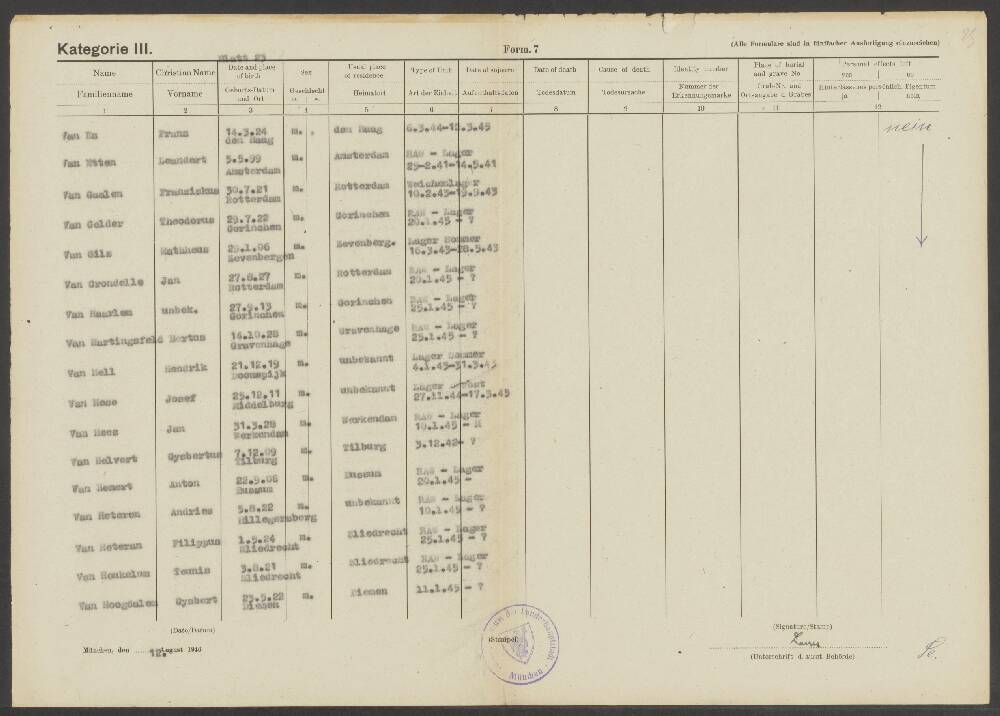 Kategorie III.
Blatt 23
Form. 7
(Alle Formulare sind in fünffacher Ausfertigung einzureichen)
Name Christian Name Date and place of birth Sex Usual place of residence Type of Unit Date of sojourn Date of death Cause of death Identity number Place of burial and grave No Personal effects left yes no
Familienname Vorname Geburts-Datum und Ort Geschlecht Heimatort Art der Einheit Aufenthaltsdaten Todesdatum Todesursache Nummer der Erkennungsmarke Grab-Nr. und Ortsangabe d. Grabes Hinterlassenes persönlich. Eigentum ja nein
1 2 3 4 5 6 7 8 9 10 11 12
Van Es Frans 14.3.24 m. den Haag 6.3.44-12.3.45 nein
den Haag
Van Etten Leendert 5.5.99 m. Amsterdam RAW - Lager
Amsterdam 25-2.41-14.5.41
Van Gaalen Franziskus 30.7.21 m. Rotterdam Weichenlager
Rotterdam 10.2.43-19.9.43
Van Gelder Theodorus 29.7.22 m. Gorinchen RAW - Lager
Gorinchen 20.1.45 - ?
Van Gils Mathheus 29.1.06 m. Zevenberg. Lager Sommer
Zevenbergen 16.3.43-28.5.43
Van Grondelle Jan 27.8.27 m. Rotterdam RAW - Lager
Rotterdam 20.1.45 - ?
Van Haarlem unbek. 27.9.13 m. Gorinchen RAW - Lager
Gorinchen 25.1.45 - ?
Van Hartingsfeld Bertus 14.10.28 m. Gravenhage RAW - Lager
Gravenhage 25.1.45 - ?
Van Hell Hendrik 21.12.19 m. unbekannt Lager Sommer
Doornspijk 4.1.45-31.3.45
Van Hese Josef 25.12.11 m. unbekannt Lager Herbst
Middelburg 27.11.44-17.3.45
Van Hees Jan 31.3.28 m. Werkendam RAW - Lager
Werkendam 10.1.45 -
Van Helvert Gysbertus 7.12.09 m. Tilburg 3.12.42- ?
Tilburg
Van Hemert Anton 22.5.06 m. Bussum RAW - Lager
Bussum 20.1.45 -
Van Heteren Andries 5.8.22 m. unbekannt RAW - Lager
Hillegersberg 10.1.45 - ?
Van Heteran Filippus 1.5.24 m. Sliedrecht RAW - Lager
Sliedrecht 25.1.45 - ?
Van Houkelum Teunis 3.8.21 m. Sliedrecht RAW - Lager
Sliedrecht 25.1.45 - ?
Van Hoogdalem Gysbert 23.5.22 m. Diemen 11.1.45 - ?
Diemen
(Date/Datum)
München, den 12. August 1946
(Stempel)
München
(Signature/Stamp)
(Unterschrift d. ausst. Behörde)